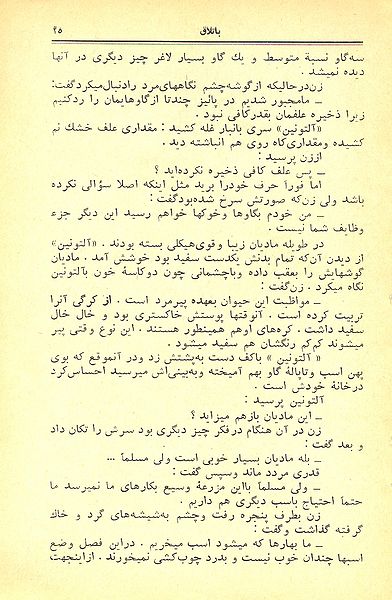 باتلاق
۲۵
سه گاو نسبة متوسط و يك گاو بسیار لاغر چیز دیگری در آنها
دیده نمیشد.
زن درحالیکه از گوشه چشم نگاههای مرد را دنبال میکرد گفت:
ـ ما مجبور شدیم در پائیز چند تا از گاوهایمان را رد کنیم
زیرا ذخیره علفمان بقدر کافی نبود.
«آلتونین» سری بانبار غله کشید: مقداری علف خشك نم
کشیده ومقداری کاه روی هم انباشته دید.
از زن پرسید:
ـ پس علف کافی ذخیره نکرده‌اید؟
اما فوراً حرف خود را برید مثل اینکه اصلا سؤالی نکرده
باشد ولی زن که صورتش سرخ شده بود گفت:
ـ من خودم بگاوها وخوکها خواهم رسید این دیگر جزء
وظایف شما نیست.
در طویله مادیان زیبا و قوی‌هیکلی بسته بودند. «آلتونین»
از دیدن آن که تمام بدنش یکدست سفید بود خوشش آمد. مادیان
گوشهایش را بعقب داده وباچشمانی چون دوکاسهٔ خون بآلتونین
نگاه میکرد. زن گفت:
ـ مواظبت این حیوان بعهده پیرمرد است. از کرگی آنرا
تربیت کرده است. آنوقتها پوستش خاکستری بود و خال خال
سفید داشت. کره‌های او هم همینطور هستند. این نوع وقتی پیر
میشوند کم کم رنگشان هم سفید میشود.
«آلتونین» با کف دست به پشتش زد ودر آنموقع که بوی
پهن اسب وتاپالهٔ گاو بهم آمیخته و به بینی‌اش میرسید احساس کرد
در خانهٔ خودش است.
آلتونین پرسید:
ـ این مادیان بازهم میزاید؟
زن در آن هنگام در فکر چیز دیگری بود سرش را تکان داد
و بعد گفت:
ـ بله مادیان بسیار خوبی است ولی مسلماً ...
قدری مردد ماند وسپس گفت:
ـ ولی مسلماً با این مزرعهٔ وسیع بکارهای ما نمیرسد ما
حتماً احتیاج باسب دیگری هم داریم.
زن بطرف پنجره رفت وچشم به شیشه‌های گرد و خاك
گرفته گذاشت وگفت:
ـ ما بهارها که میشود اسب میخریم. دراین فصل وضع
اسبها چندان خوب نیست و بدرد چوب‌کشی نمیخورند. از اینجهت